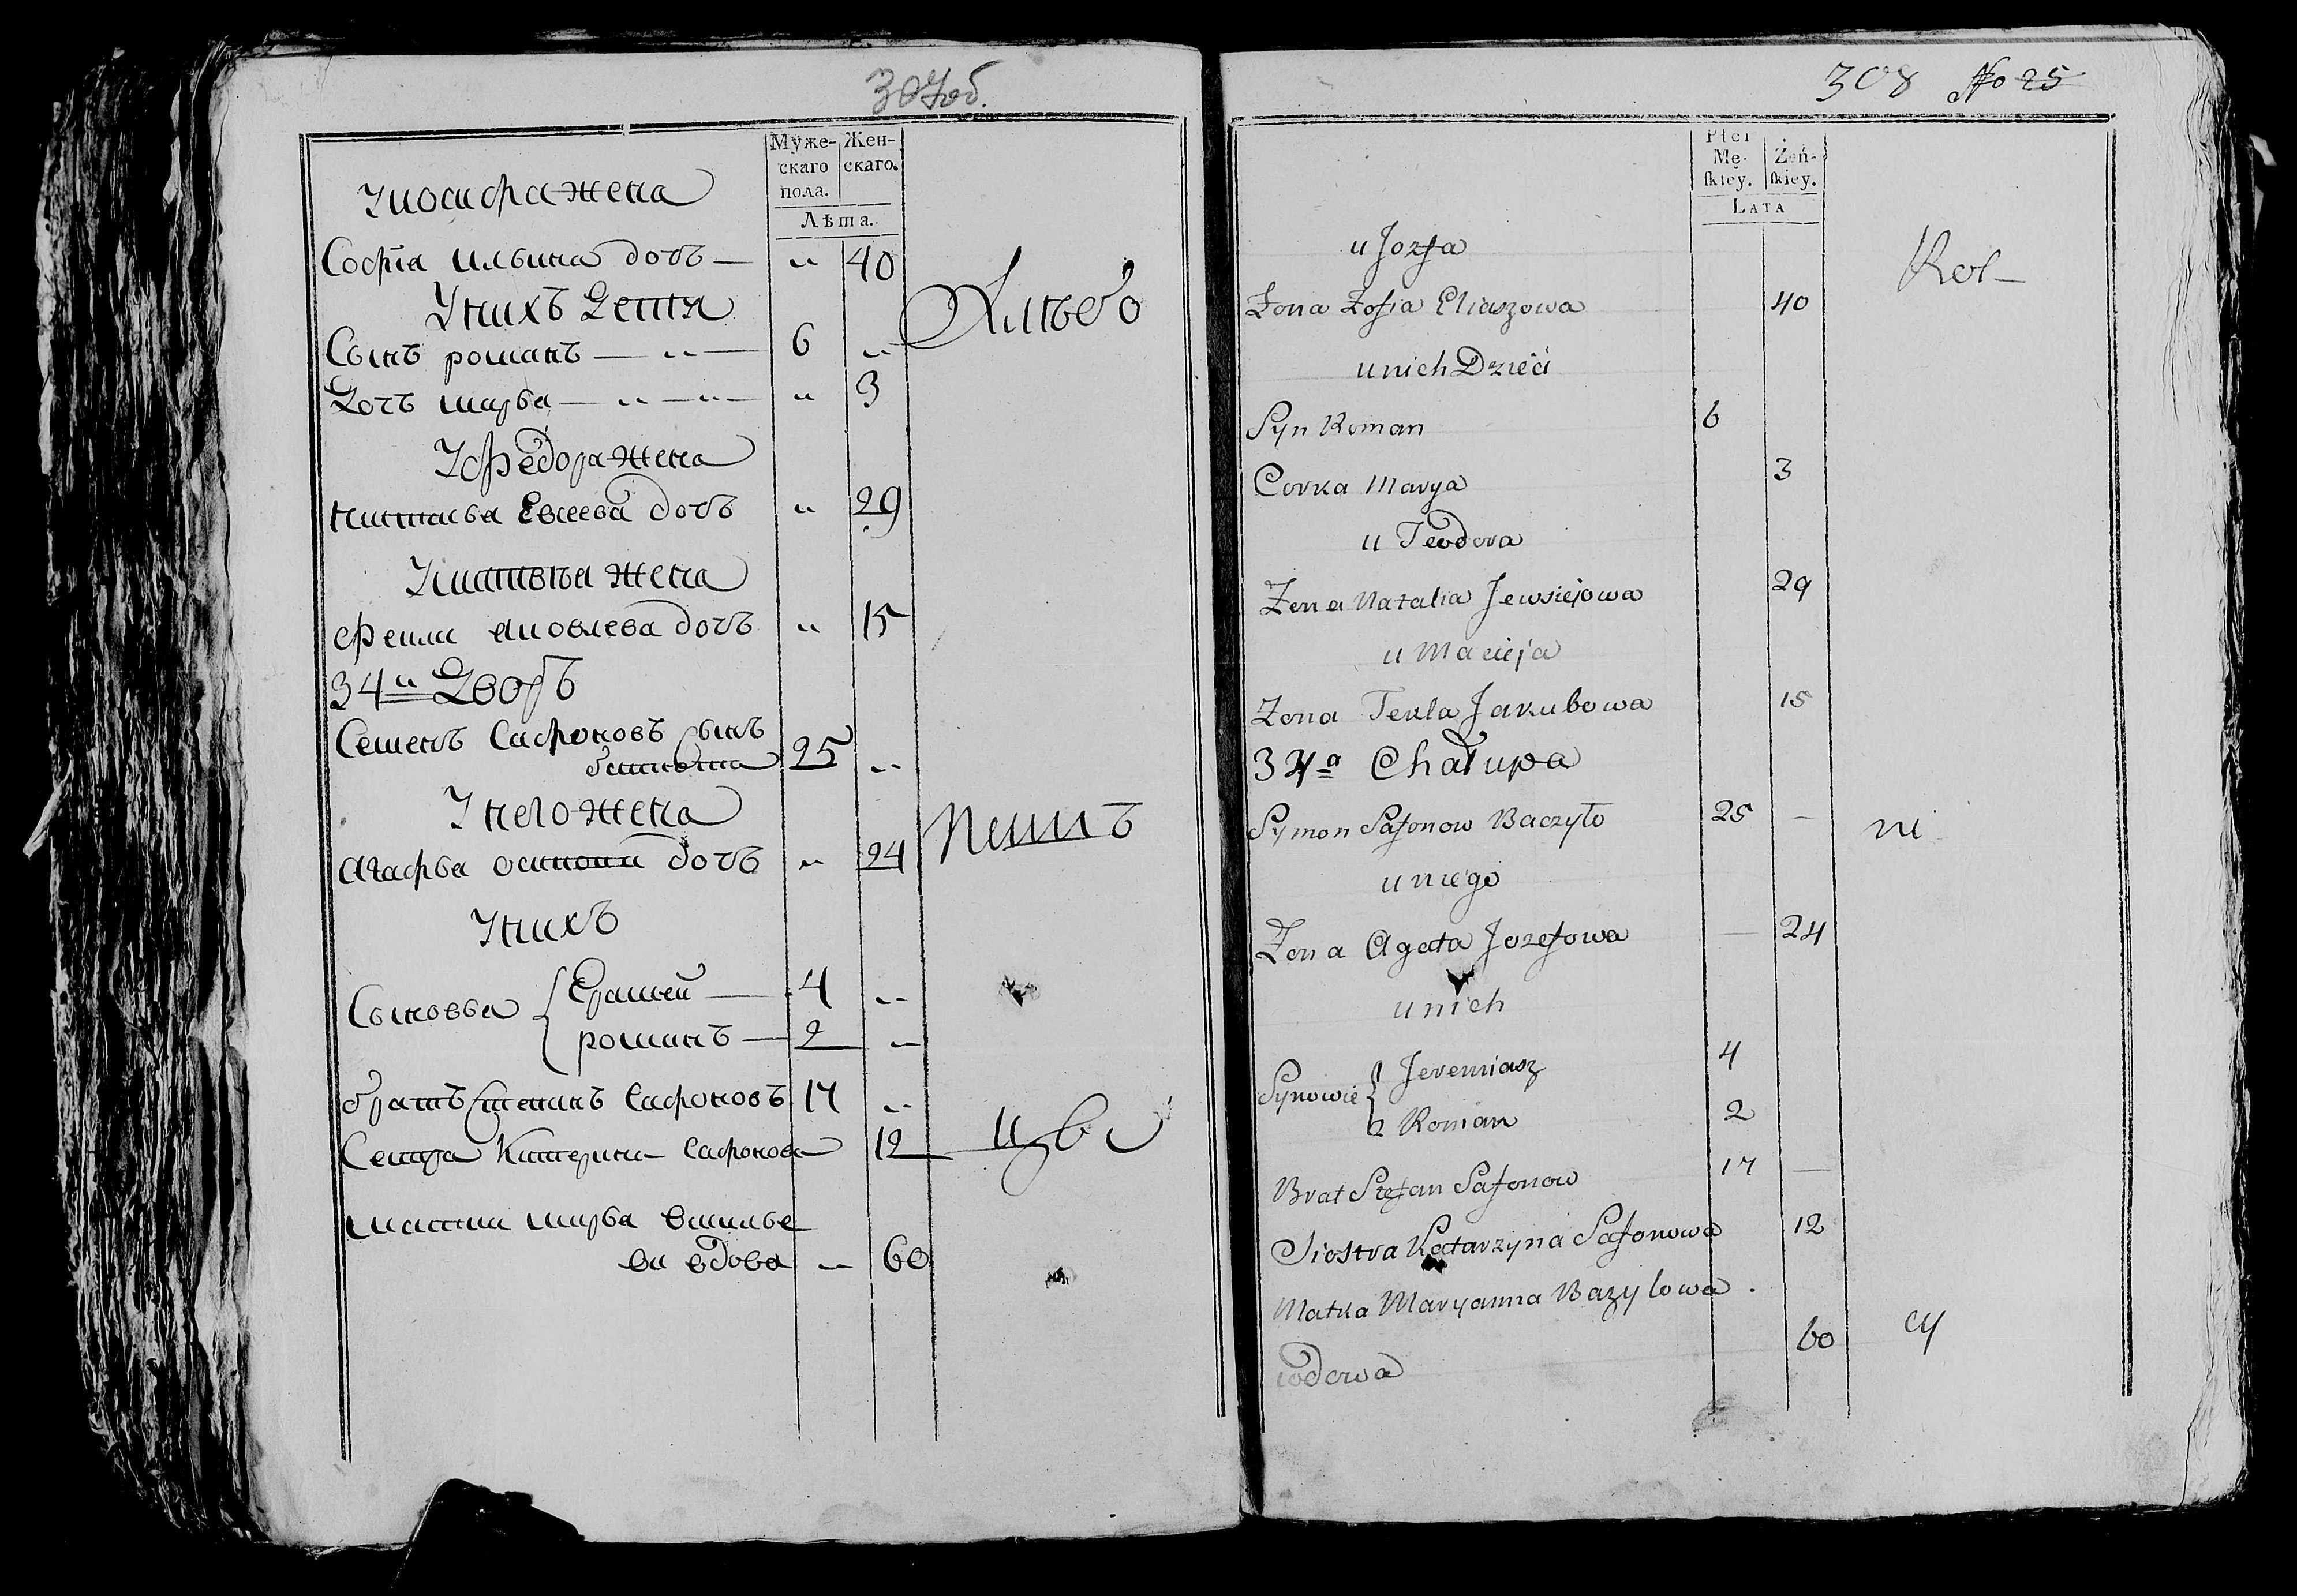 307об.
Муже-
скаго
пола.
Жен-
скаго.
Лѣта.
У иосифа жена
Софїа илвина дочъ — „ 40
У нихъ дети
Сынъ романъ — „ — 6 „
Дочъ марва — „ — „ — „ 3
У федора жена
наталва Евсеева дочъ „ 29
У матвѣа жена
фекла аковлева дочъ „ 15
34й Дворъ
Семенъ Сафоновъ Сынъ
25 „
У него жена
агафва осипова дочъ „ 24
У нихъ
Сыновва { Еремей — 4 „
романъ — 2 „
братъ Степанъ Сафоновъ 17 „
Сестра Катерина Сафонова 12
мати марва василве
ва вдова „ 60
308 No 25
Płci
Mę-
ſkiey.
Żeń-
ſkiey.
LATA
u Jozfa
Zona Zofia Eliaszowa 40
u nich Dzieci
Syn Roman 6
Corka Marya 3
u Teodora
Zona Natalia Jewsiejowa 29
u Macieja
Zona Tekla Jakubowa 15
34a Chałupa
Symon Safonow Baczyło 25 —
u niego
Zona Agata Jozefowa — 24
u nich
Synowie { Jeremiasz 4
Roman 2
Brat Stefan Safonow 17 —
Siostra Katarzyna Safonowa 12
Matka Maryanna Bazylowa .
wdowa 60